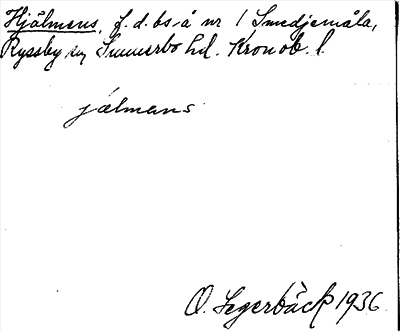 Hjälmens, f. d. bs. å nr 1 Smedjemåla,
Ryssby sn, Sunnerbo hd. Kronob. l.
jälmens
O. Segerbäck 1936